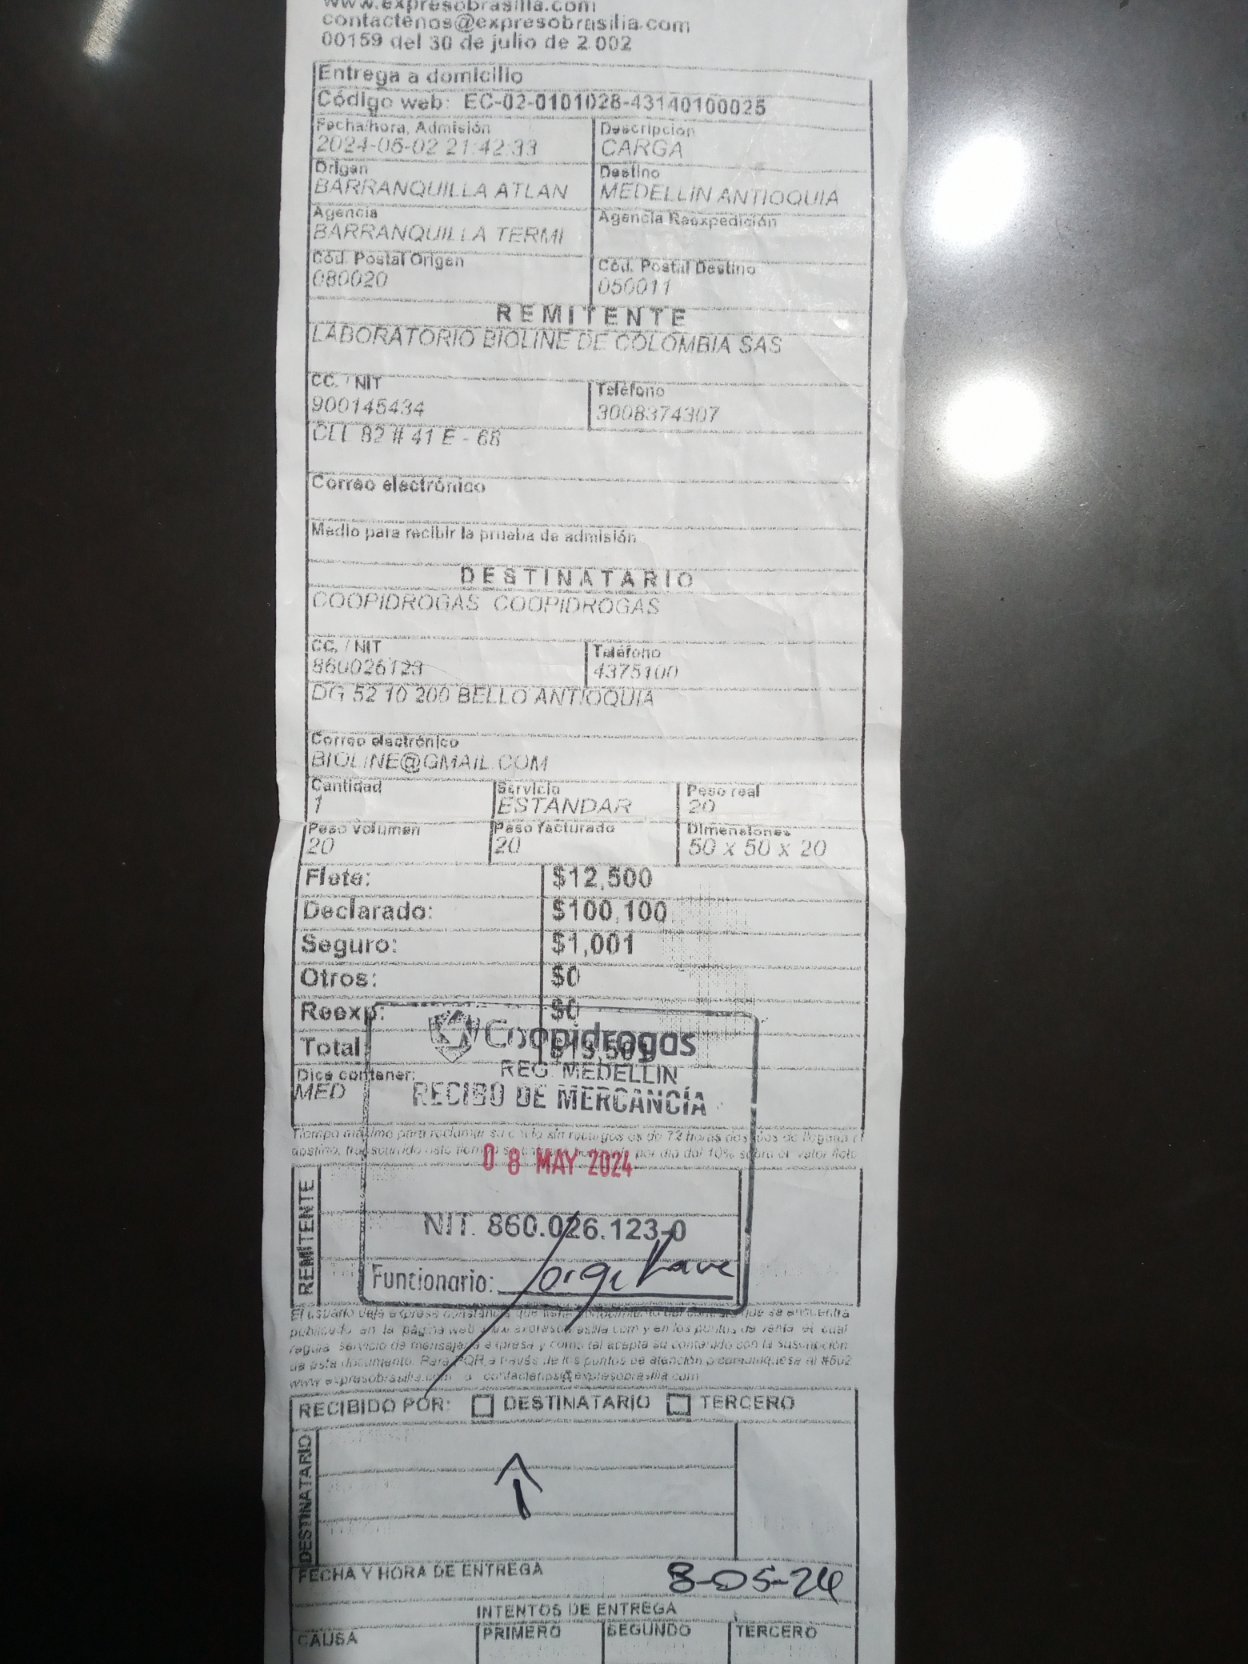 www.expresobrasilia.com
contactenos@expresobrasilia.com
00159 del 30 de julio de 2.002
Entrega a domicilio
Código web: EC-02-0101028-43140100025
Fecha/hora, Admisión
2024-05-02 21:42:33
Descripción
CARGA
Origen
BARRANQUILLA ATLAN
Destino
MEDELLIN ANTIOQUIA
Agencia
BARRANQUILLA TERMI
Agencia Reexpedición
Cód. Postal Origen
080020
Cód. Postal Destino
050011
REMITENTE
LABORATORIO BIOLINE DE COLOMBIA SAS
CC. / NIT
900145434
Teléfono
3008374307
CLL 82 # 41 E - 68
Correo electrónico
Medio para recibir la prueba de admisión
DESTINATARIO
COOPIDROGAS COOPIDROGAS
CC. / NIT
860026123
Teléfono
4375100
DG 52 10 200 BELLO ANTIOQUIA
Correo electrónico
BIOLINE@GMAIL.COM
Cantidad
1
Servicio
ESTANDAR
Peso real
20
Peso volumen
20
Peso facturado
20
Dimensiones
50 x 50 x 20
Flete: $12,500
Declarado: $100,100
Seguro: $1,001
Otros: $0
Reexp: $0
Total: $13,501
Dice contener:
MED
Coopidrogas
REG. MEDELLIN
RECIBO DE MERCANCÍA
08 MAY 2024
NIT. 860.026.123-0
Funcionario: Jorge
Tiempo máximo para reclamar su envío sin recargos es de 72 horas después de llegada
destino, transcurrido este tiempo por día del 10% sobre el valor flete
REMITENTE
El usuario deja expresa constancia que tiene conocimiento del contrato que se encuentra
publicado en la página web y en los puntos de venta el cual
regula servicio de mensajería expresa y como tal acepta su contenido con la suscripción
de este documento. Para PQR a través de los puntos de atención o comuníquese al #502
www.expresobrasilia.com o contactenos@expresobrasilia.com
RECIBIDO POR: DESTINATARIO TERCERO
DESTINATARIO
FECHA Y HORA DE ENTREGA 8-05-24
INTENTOS DE ENTREGA
CAUSA PRIMERO SEGUNDO TERCERO